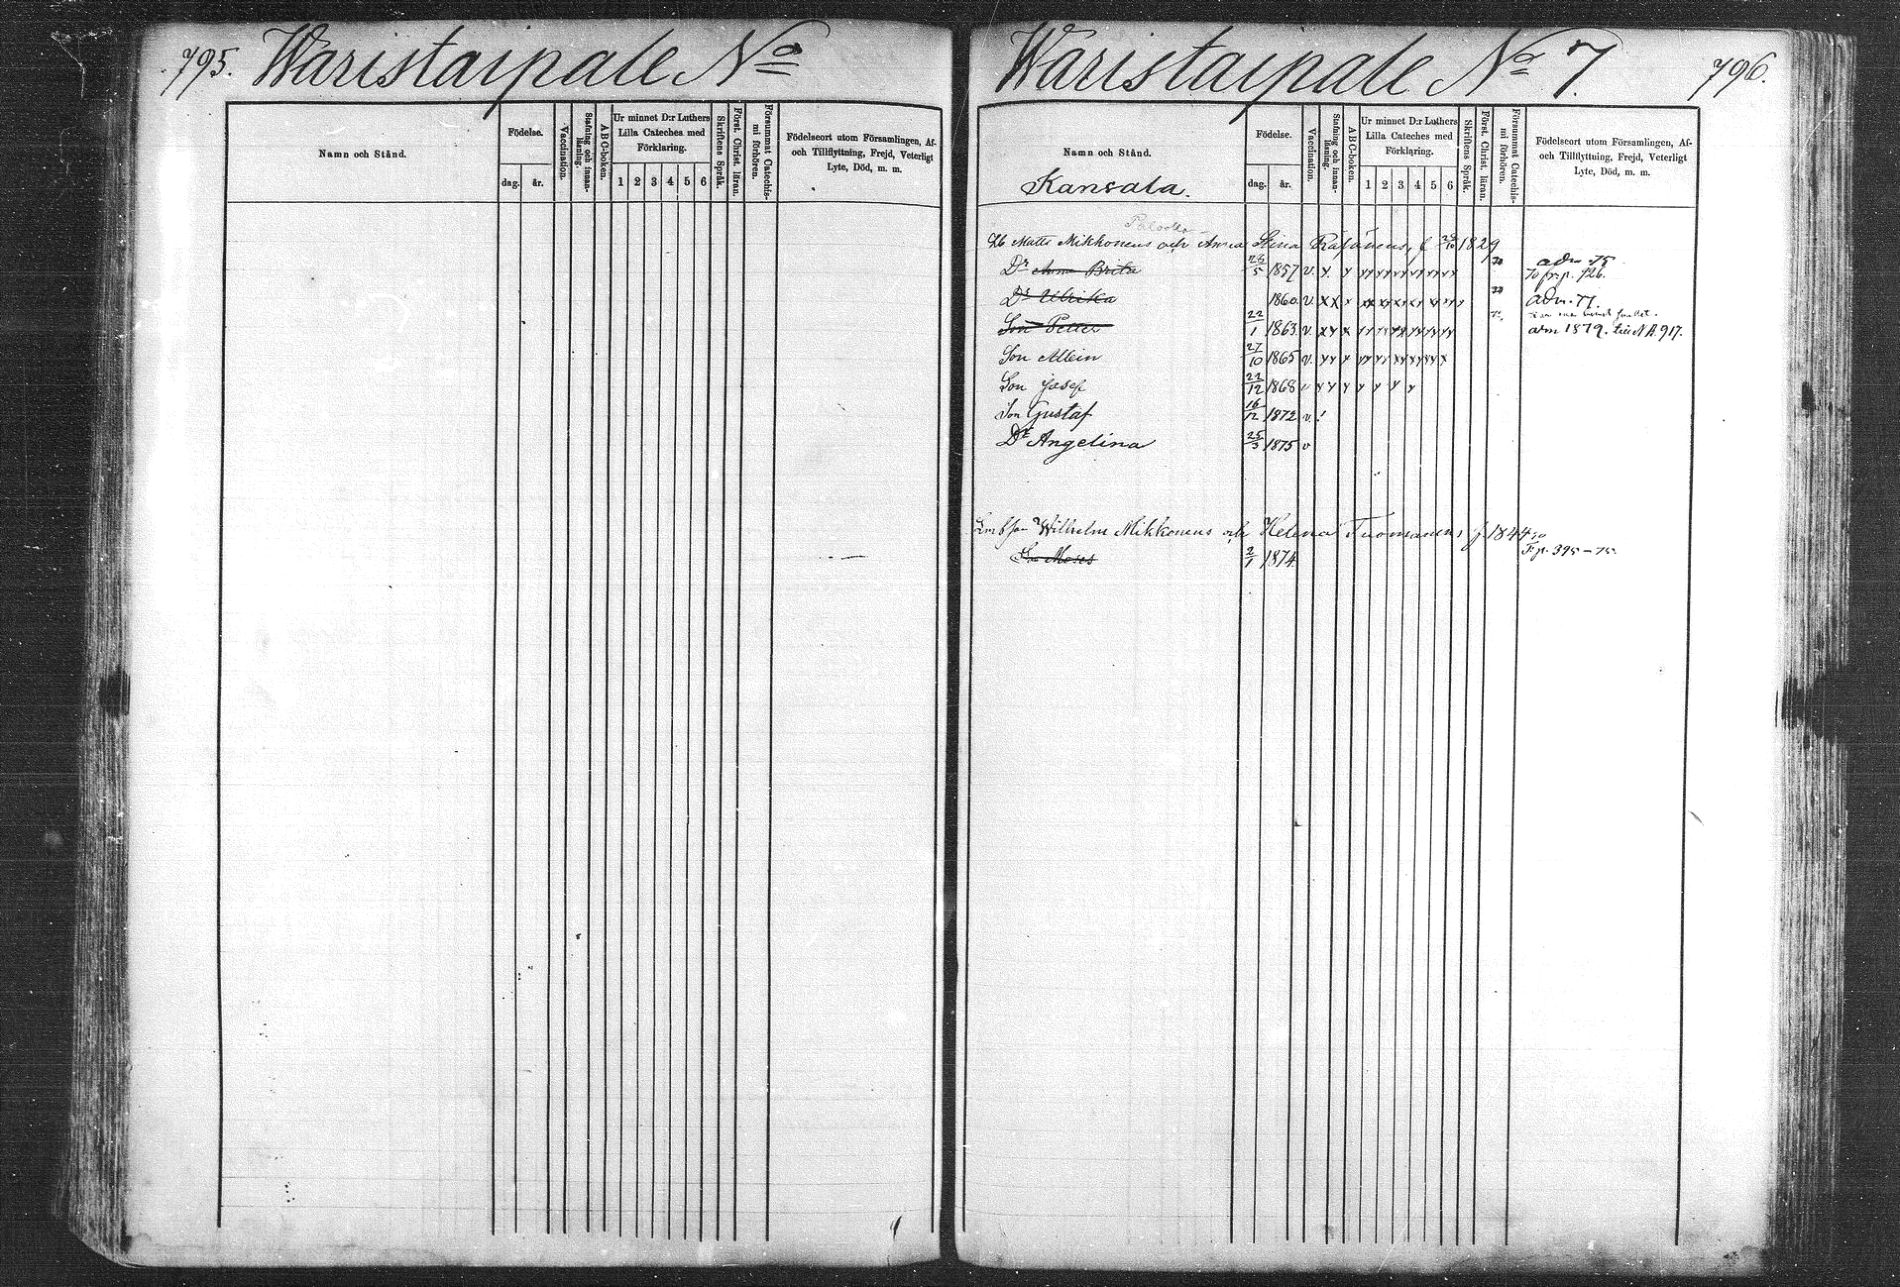 795. Waristaipale No
Namn och Stånd.
Födelse.
dag. år.
Vaccination.
Stafning och innanläsning.
A B C-boken.
Ur minnet D:r Luthers
Lilla Cateches med
Förklaring.
1 2 3 4 5 6
Skriftens Språk.
Först. Christ. läran.
Försummat Catechismi förhören.
Födelseort utom Församlingen, Af-
och Tillflyttning, Frejd, Veterligt
Lyte, Död, m. m.
Waristaipale No 7. 796.
Namn och Stånd.
Kansala.
Födelse.
dag. år.
Vaccination.
Stafning och innanläsning.
A B C-boken.
Ur minnet D:r Luthers
Lilla Cateches med
Förklaring.
1 2 3 4 5 6
Skriftens Språk.
Först. Christ. läran.
Försummat Catechismi förhören.
Födelseort utom Församlingen, Af-
och Tillflyttning, Frejd, Veterligt
Lyte, Död, m. m.
Matts Mikkonens och Anna Stina 1829
Dr Anna Brita 1857 v. adm. 75
fr. p. 726.
Dr Ulrika 1860 v. adm. 77.
Son Petter 22/1 1863 v. adm 1879. 917.
Son Allein 27/10 1865 v.
Son Josef 22/12 1868 v
Son Gustaf 16/12 1872 v. !
Dr Angelina 25/3 1875 v
Wilhelm Mikkonens och Helena Tuomanens f. 1844
Son Moses 2/1 1874 F. p. 395 – 75.